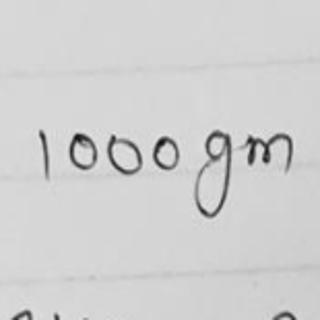 1000 gm